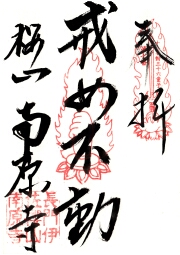 奉拝
戒め不動
桜山 南原寺